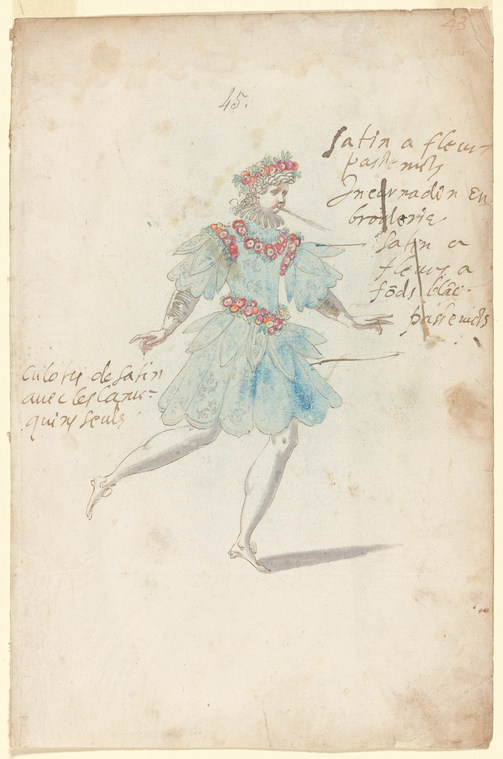 43
45.
Satin a fleurs
passemts
Incarnadin En
broderie
Satin a
fleurs a
fods blāc
passemts
Culotes de satin
avec les
quins seuls